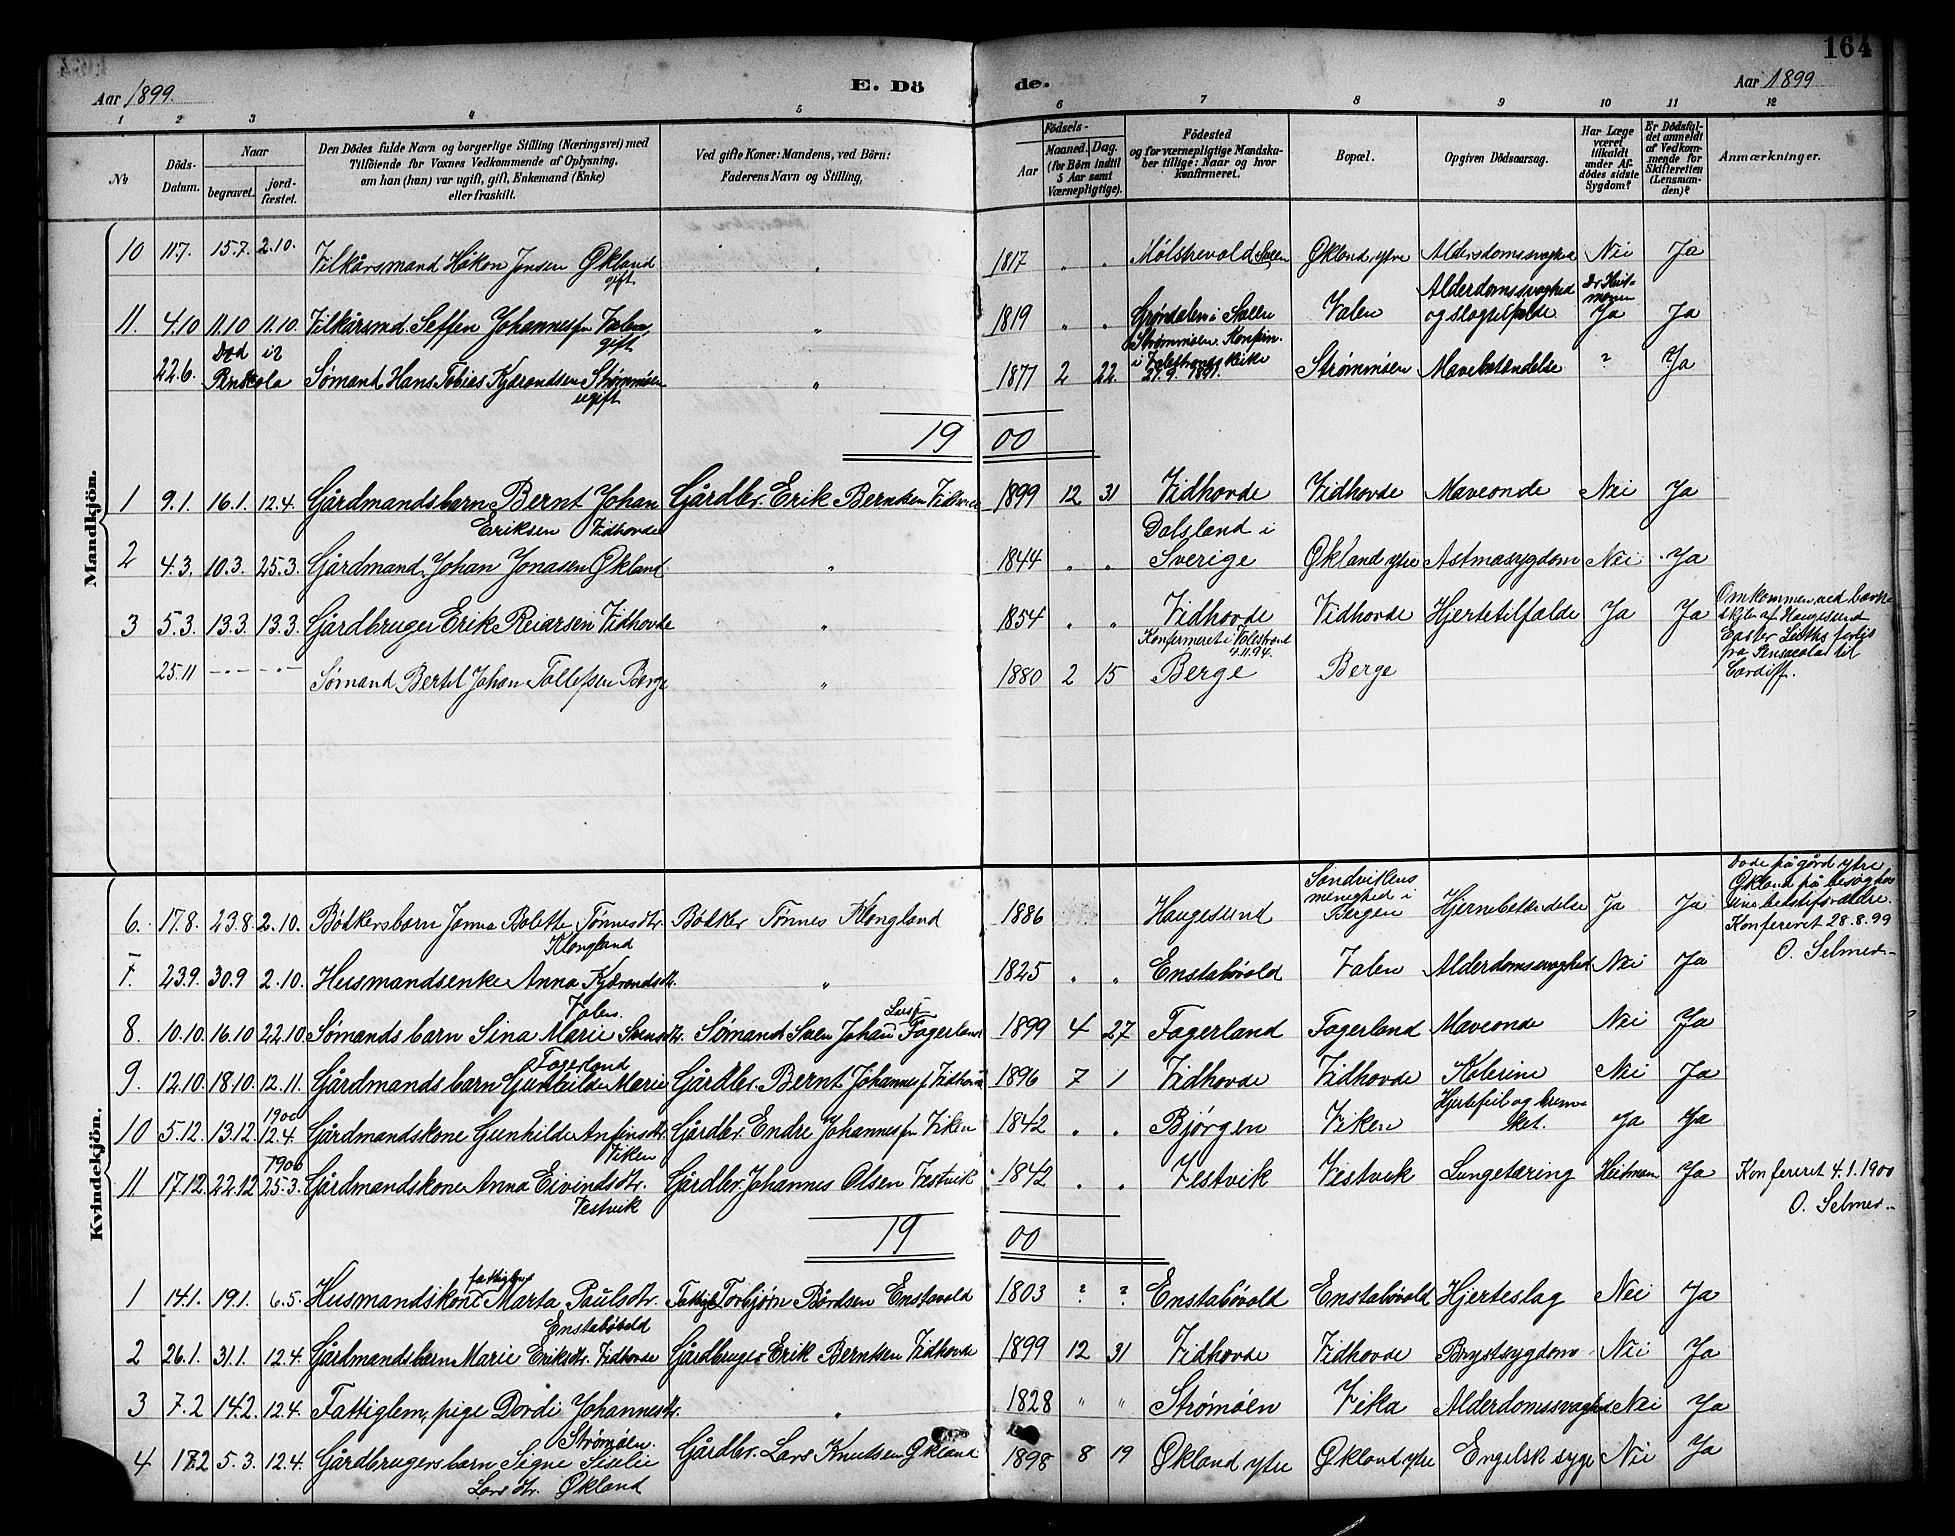 164
Aar 1899. E. Dö de. Aar 1899
1 2 3 4 5 6 7 8 9 10 11 12
№ Döds-Datum. Naar begravet. jord-fæstet. Den Dödes fulde Navn og borgerlige Stilling (Næringsvei) med Tilföiende for Voxnes Vedkommende af Oplysning, om han (hun) var ugift, gift, Enkemand (Enke) eller fraskilt. Ved gifte Koner: Mandens, ved Börn: Faderens Navn og Stilling, Födsels- Aar Maaned. Dag. (for Börn indtil 5 Aar samt Værnepligtige). Födested og for værnepligtige Mandskaber tillige: Naar og hvor konfirmeret. Bopæl. Opgiven Dödsaarsag. Har Læge været tilkaldt under Afdödes sidste Sygdom? Er Dödsfaldet anmeldt af Vedkommende for Skifteretten (Lensmanden)? Anmærkninger.
Mandkjön.
10 11.7. 15.7. 2.10. Vilkårsmand Håkon Jonsen Økland gift " 1817 " " Mølstrevold Sveen Økland ytre Alderdomssvaghed Nei Ja
11. 4.10 11.10 11.10. Vilkårsmd. Seffen Johannesen Valen, gift " 1819 " " Grøndalen i Sveen Valen Alderdomssvaghed og slagtilfælde Dr Heitmann Ja Ja
22.6. Død i Penskola Sømand Hans Tobias Kjærandsen Strømmøen ugift " 1877 2 22. Strømmøen. Konfirm. i Valestrands kirke 27.9.1891. Strømmøen Mavebetændelse ? Ja
19 00
1 9.1. 16.1. 12.4. Gårdmandsbarn Bernt Johan Eriksen Vidhovde Gårdbr. Erik Berntsen Vidhovde 1899 12 31 Vidhovde Vidhovde Maveonde Nei Ja
2 4.3. 10.3. 25.3. Gårdmand, Johan Jonasen Økland " 1844 " " Dalsland i Sverige Økland ytre Astmasygdom Nei Ja
3 5.3. 13.3. 13.3. Gårdbruger Erik Reiarsen Vidhovde " 1854 " " Vidhovde Vidhovde Hjertetilfælde Ja Ja
25.11 - - - - - Sømand Bertel Johan Tollefsen Berge " 1880 2 15 Konfirmeret i Valestrand 4.11.94. Berge Berge Omkommen ved bark-skibe af Haugesund forlis fra Pensacola til Cardiff.
Kvindekjön.
6. 17.8. 23.8. 2.10. Bødkersbarn Jonna Bolette Tønnesdtr. Klongland Bødker Tønnes Klongland 1886 Haugesund Sandvikens menighed i Bergen Hjernebetændelse Ja Ja Døde på gård ytre Økland på besøg hos sine bedsteforældre. Konfereret 28.8.99 O. Selmer
7. 23.9. 30.9 2.10. Husmandsenke Anna Kjærandsdtr. Valen. " 1825 " " Enstabøvold Valen Alderdomssvaghed Nei Ja
8. 10.10. 16.10 22.10. Sømands barn Sina Marie Svensdtr. Fagerland Sømand Sven Johan Fagerland 1899 4 27 Fagerland Fagerland Maveonde Nei Ja
9. 12.10. 18.10. 12.11. Gårdmands barn Gunhilde Marie Gårdbr. Bernt Johannesen Vidhovde 1896 7 1 Vidhovde Vidhovde Kolerine Nei Ja
10 5.12. 13.12. 1900 12.4. Gårdmandskone Gunhilde Anfinsdtr. Viken Gårdbr. Endre Johannesen Viken 1842 " " Bjørgen Viken Hjertefeil og Ja Ja
11 17.12. 22.12 1900 25.3. Gårdmandskone Anna Eivindsdtr. Vestvik Gårdbr. Johannes Olsen Vestvik 1842 " " Vestvik Vestvik Lungetæring Heitmann Ja Konfereret 4.1.1900 O. Selmer
19 00
1 14.1. 19.1. 6.5. Husmandskone fattiglem Marta Paulsdtr. Enstabøvold Fattigl. Torbjørn Bårdsen Enstavold 1803 ? ? Enstabøvold Enstabøvold Hjerteslag Nei Ja
2 26.1. 31.1. 12.4. Gårdmandsbarn Marie Eriksdtr. Vidhovde Gårdbruger Erik Berntsen Vidhovde 1899 12 31 Vidhovde Vidhovde Brystsygdom Nei Ja
3 7.2 14.2. 12.4. Fattiglem, pige Dordi Johannesdtr. Strømøen. " 1828 " " Strømøen Vika Alderdomssvaghed Nei Ja
4 17.2 5.3. 12.4. Gårdbrugers barn Signe Siselie Larsdtr. Økland Gårdbr. Lars Knutsen Økland 1898 8 19 Økland ytre Økland ytre Engelsk syge Nei Ja